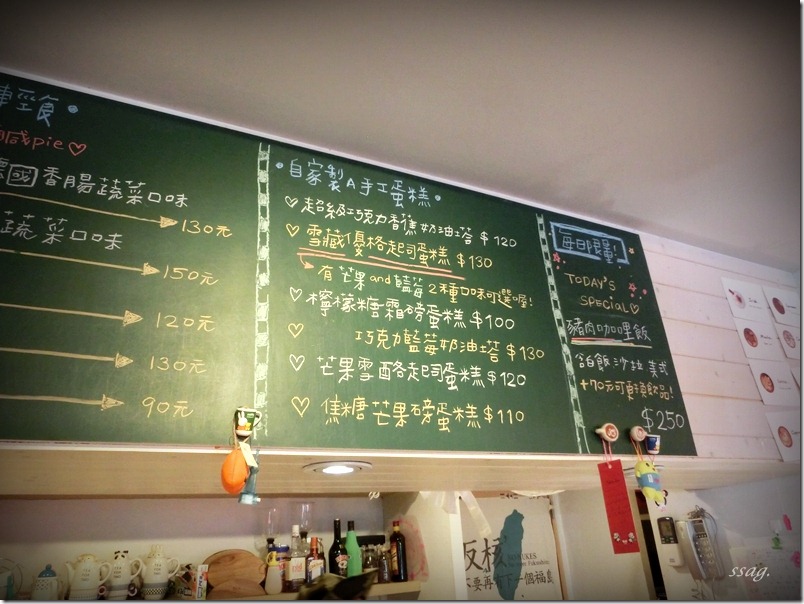 輕食
鹹pie
德國香腸蔬菜口味
130元
蔬菜口味
150元
120元
130元
90元
自家製A手工蛋糕
超級巧克力香蕉奶油塔 $120
雪藏優格起司蛋糕 $130
有芒果and藍莓2種口味可選喔!
檸檬糖霜磅蛋糕 $100
巧克力藍莓奶油塔 $130
芒果雪酪起司蛋糕 $120
焦糖芒果磅蛋糕 $110
每日限量!
TODAY'S
SPECIAL
豬肉咖哩飯
含白飯 沙拉 美式
+70元可更換飲品!
$250
反核
NO NUKES
不要再有下一個福島
ssag.